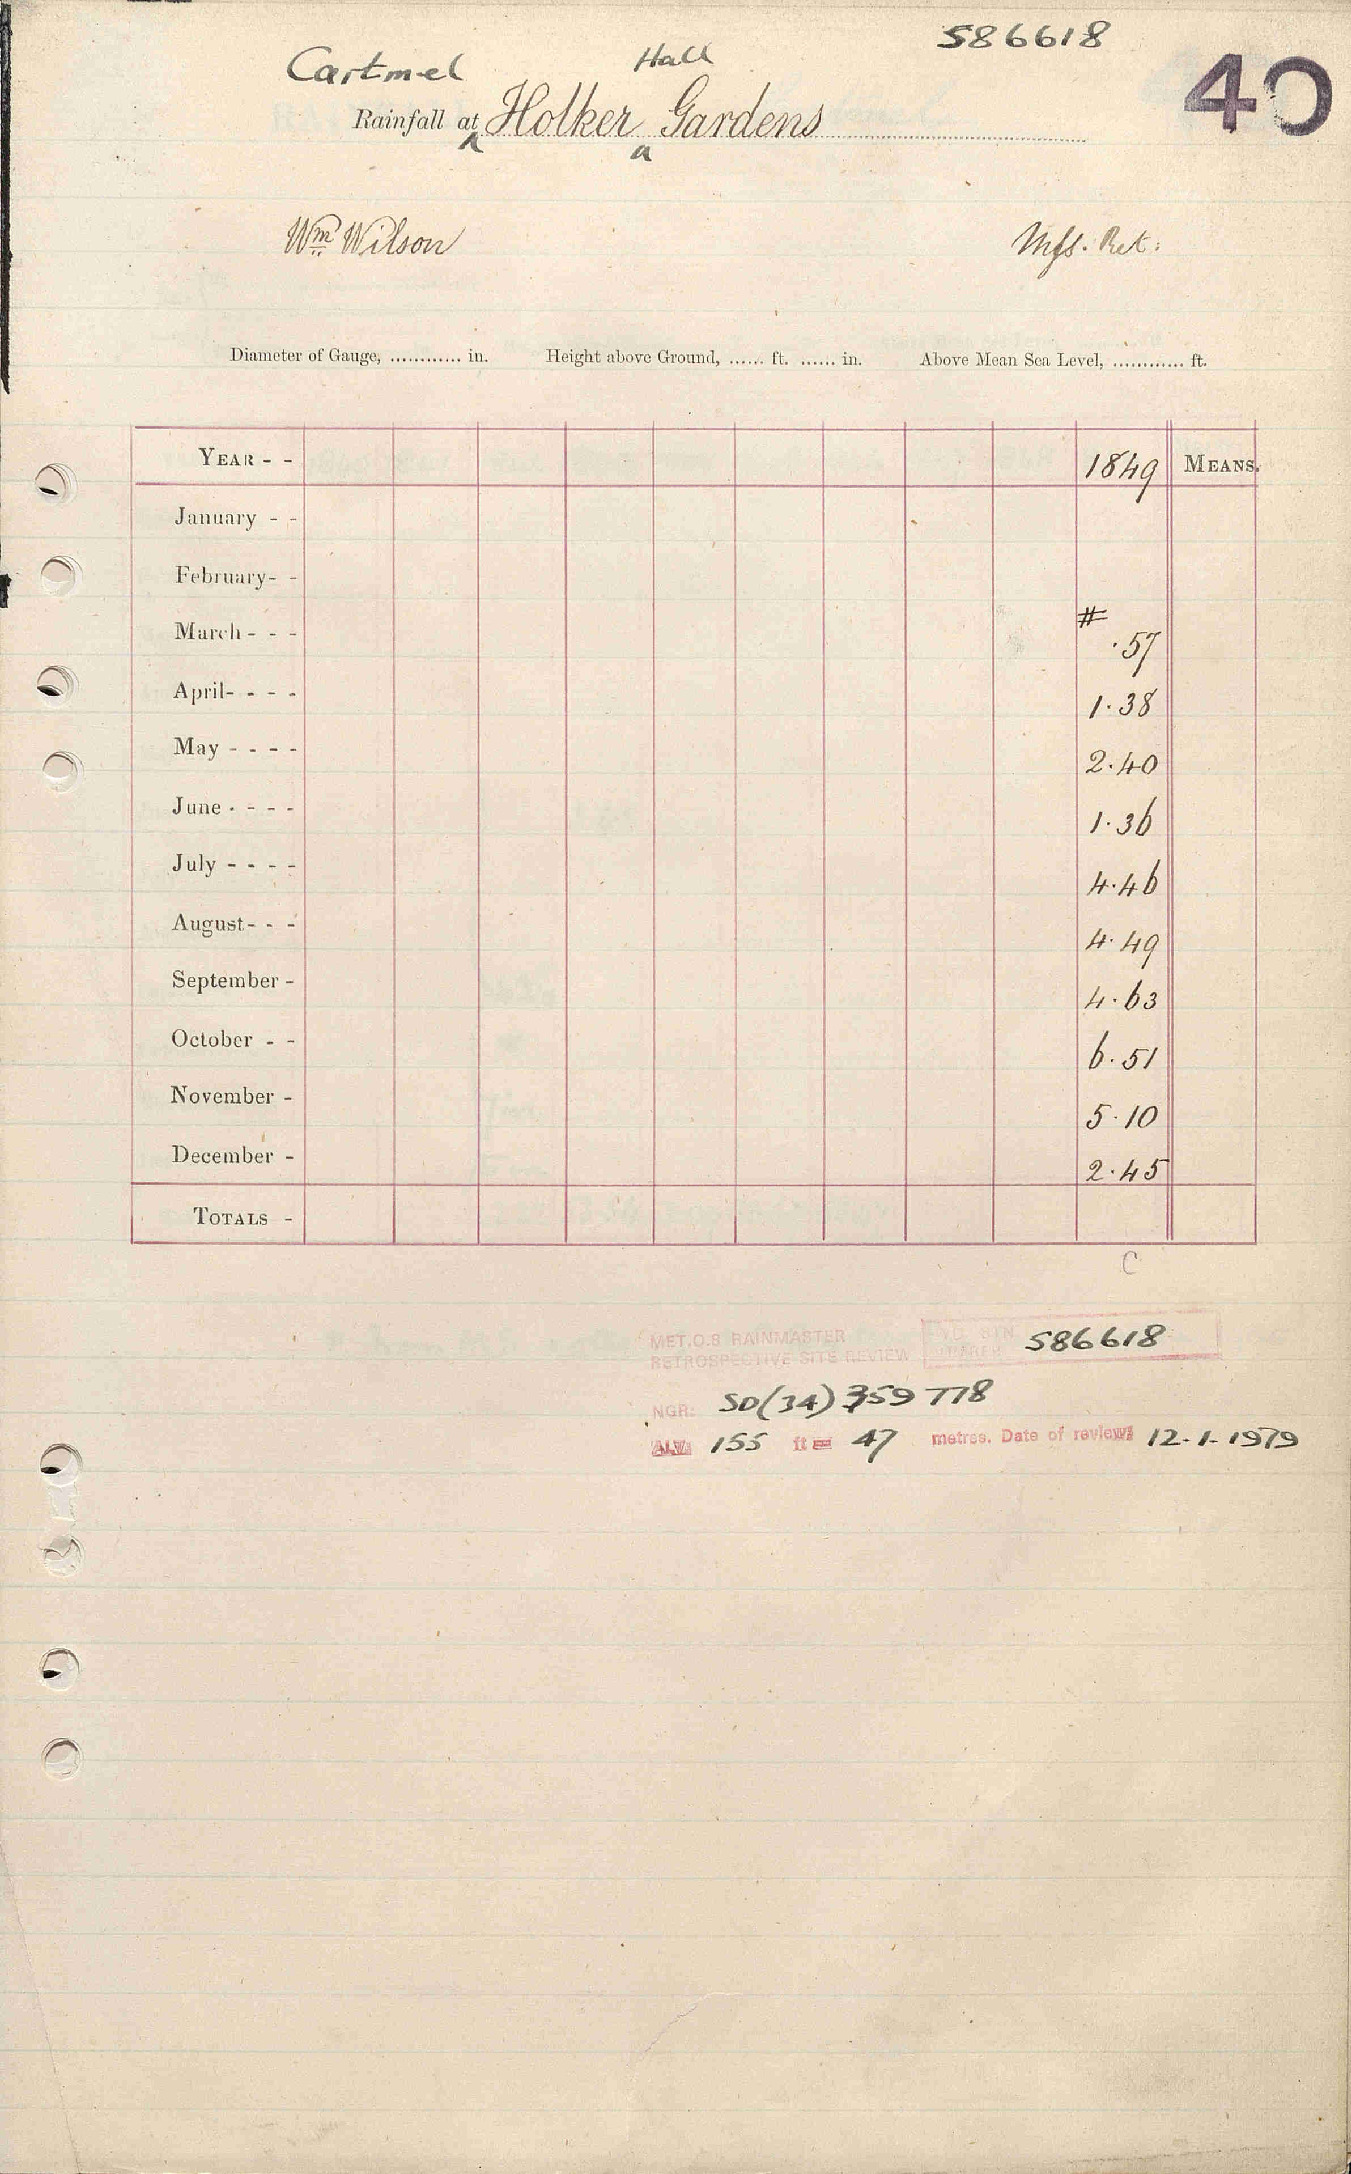 586618
40
Cartmel Hall
Rainfall at Holker Gardens
Wm Wilson
Diameter of Gauge, ............ in. Height above Ground, ...... ft. ...... in. Above Mean Sea Level, ............ ft.
YEAR - - 1849 MEANS.
January - -
February- -
March - - - # .57
April- - - - 1.38
May - - - - 2.40
June - - - - 1.36
July - - - - 4.46
August- - - 4.49
September - 4.63
October - - 6.51
November - 5.10
December - 2.45
TOTALS -
C
MET.O.8 RAINMASTER
RETROSPECTIVE SITE REVIEW 586618
NGR: SD(34) 359 778
ALT: 155 ft = 47 metres. Date of review: 12.1.1979